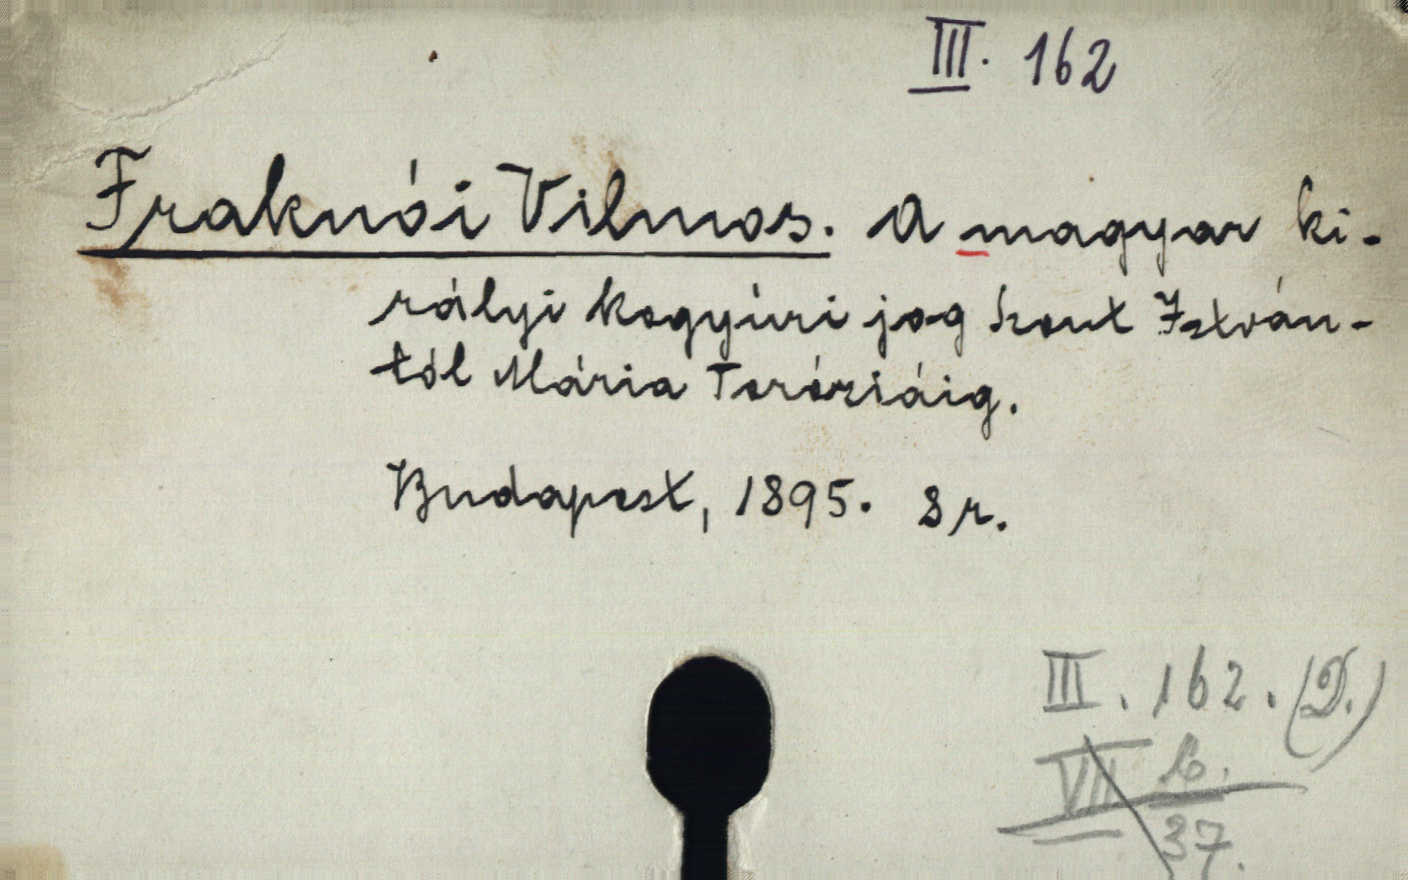 III. 162
Fraknói Vilmos. A magyar ki-
rályi kegyúri jog Szent István-
tól Mária Teréziáig.
Budapest, 1895. 8 r.
III. 162. (D.)
VII
37.